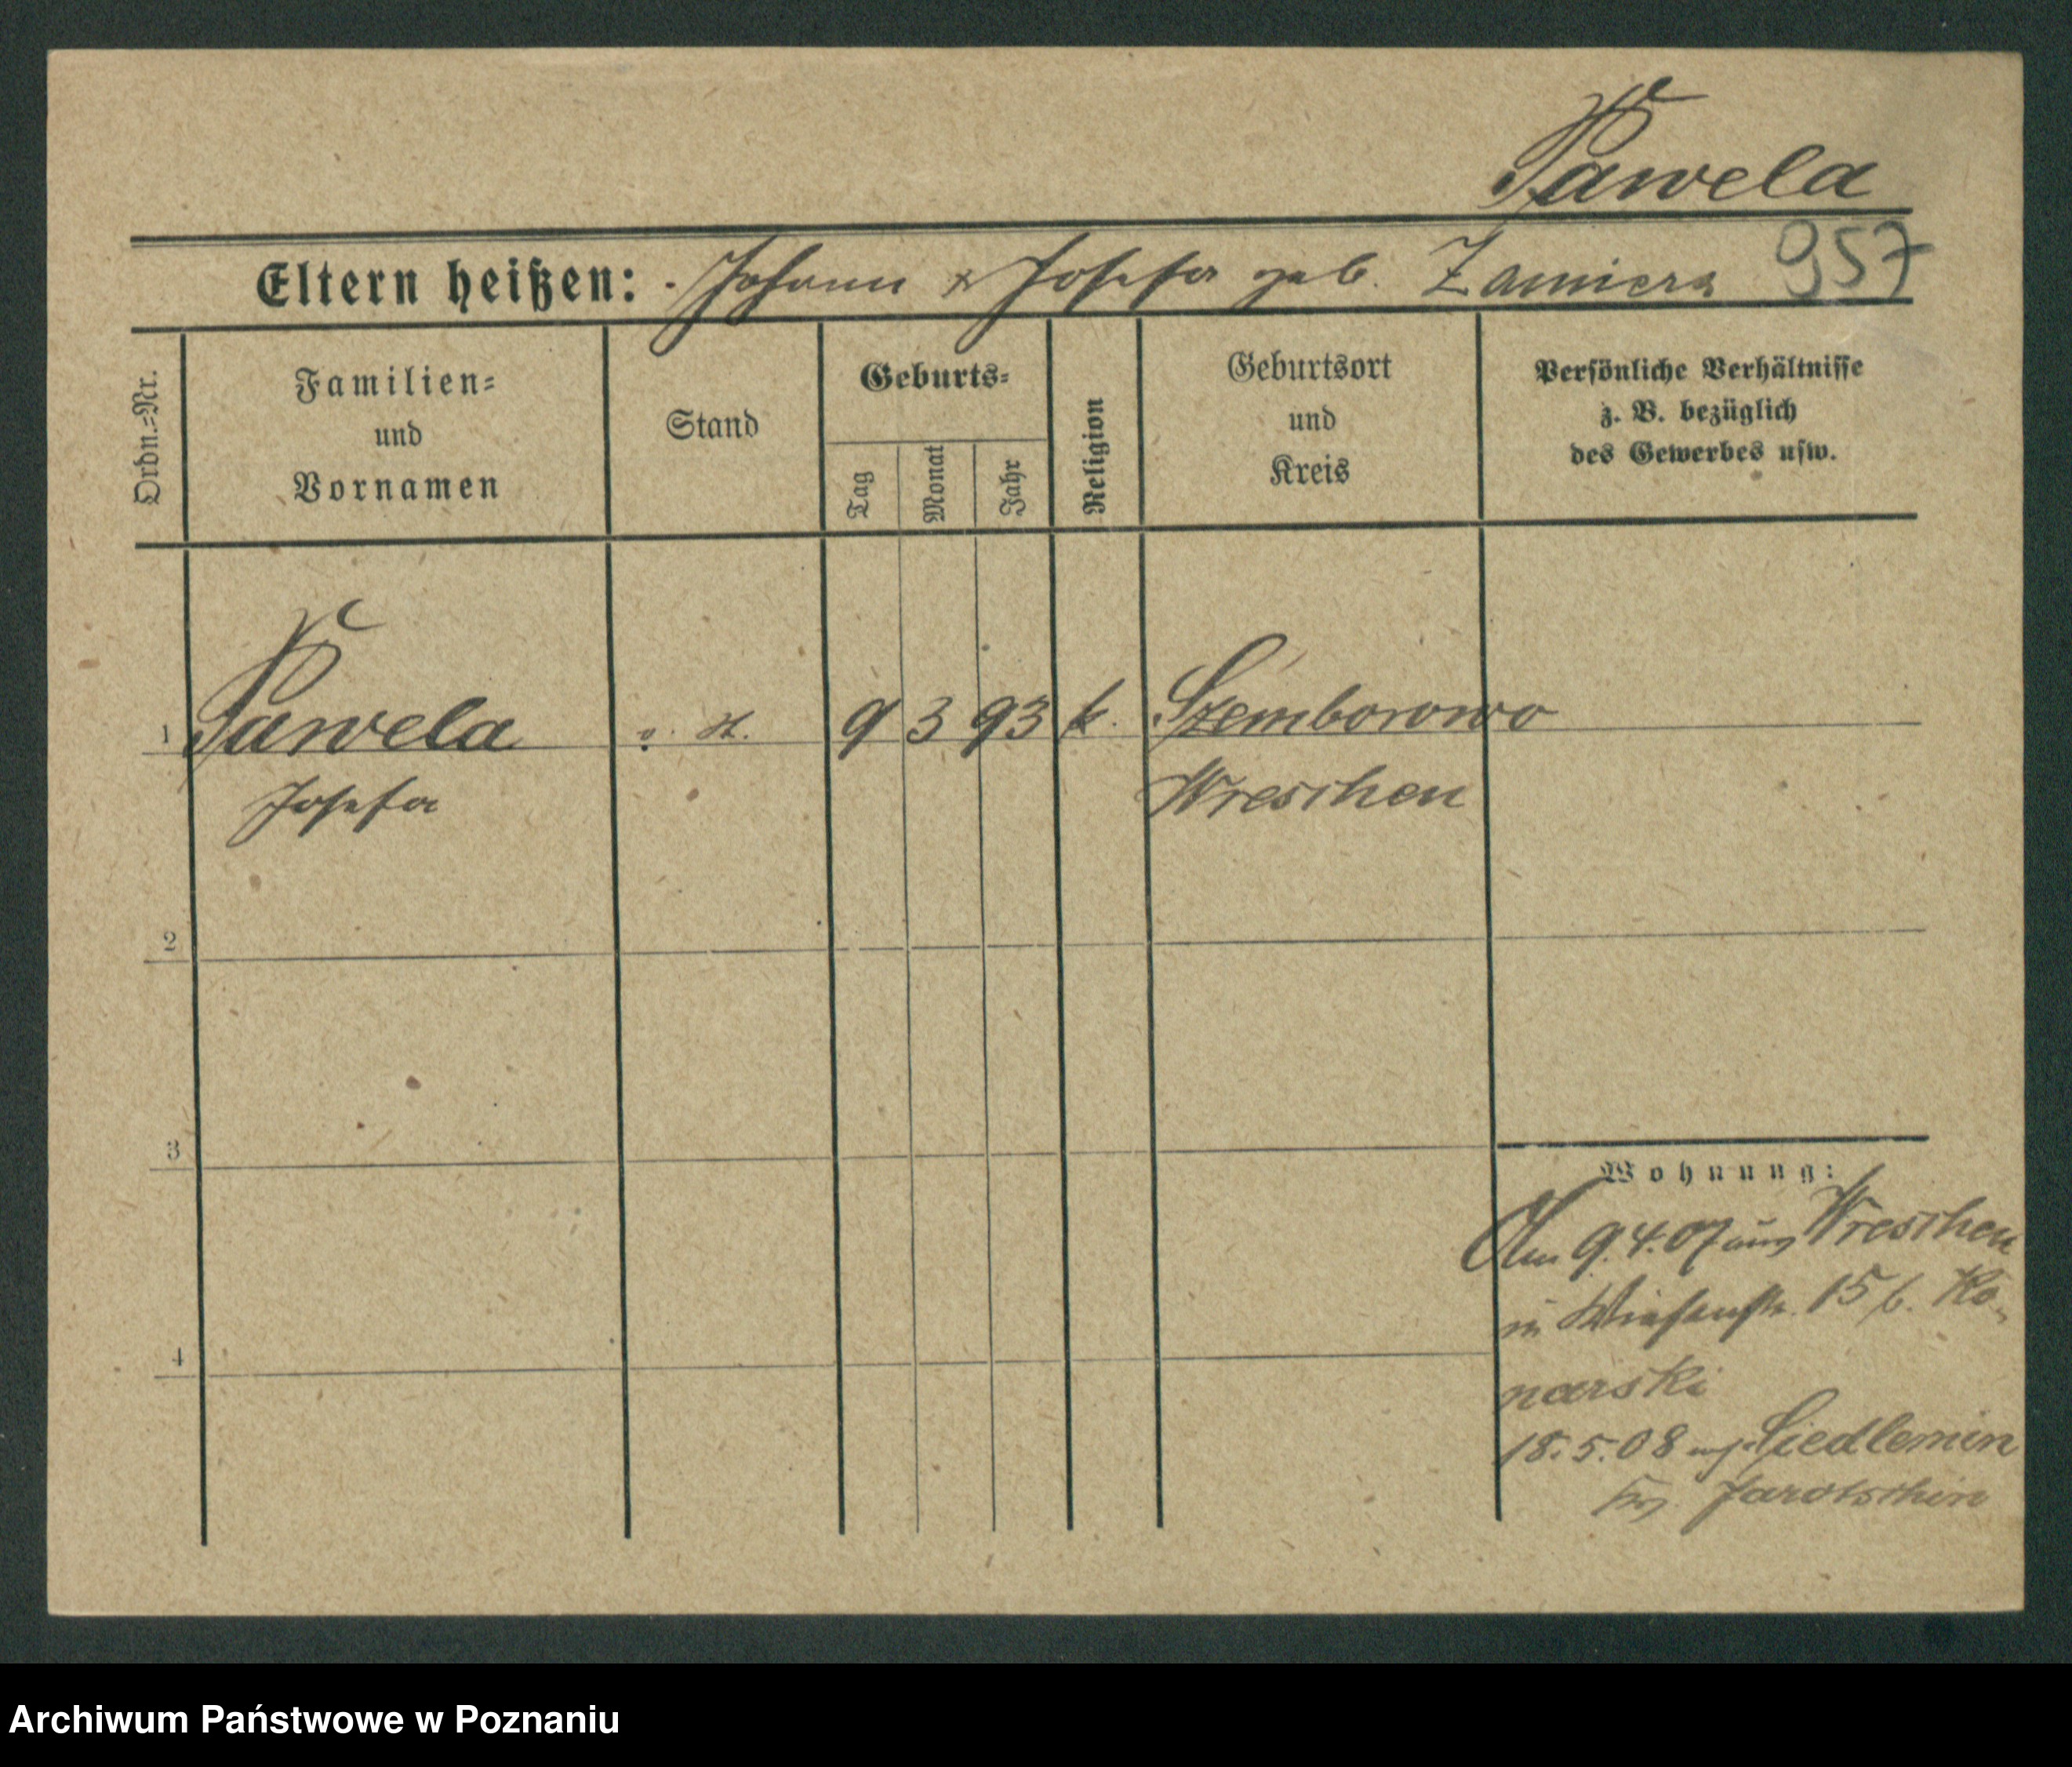 Pawela
Eltern heißen: Johann & Josefa geb. Zamiera 957
Ordn.=Nr.
Familien=
und
Vornamen
Stand
Geburts=
Tag
Monat
Jahr
Religion
Geburtsort
und
Kreis
Persönliche Verhältnisse
z. B. bezüglich
des Gewerbes usw.
1 Pawela o. St. 9 3 93 k. Szemborowo
Josefa Wreschen
2
3
Wohnung:
Am 9.4.07 aus Wreschen
in Wiesenstr. 15 b. Ko-
4
narski
18.5.08 Siedlemin
Krs. Jarotschin
Archiwum Państwowe w Poznaniu